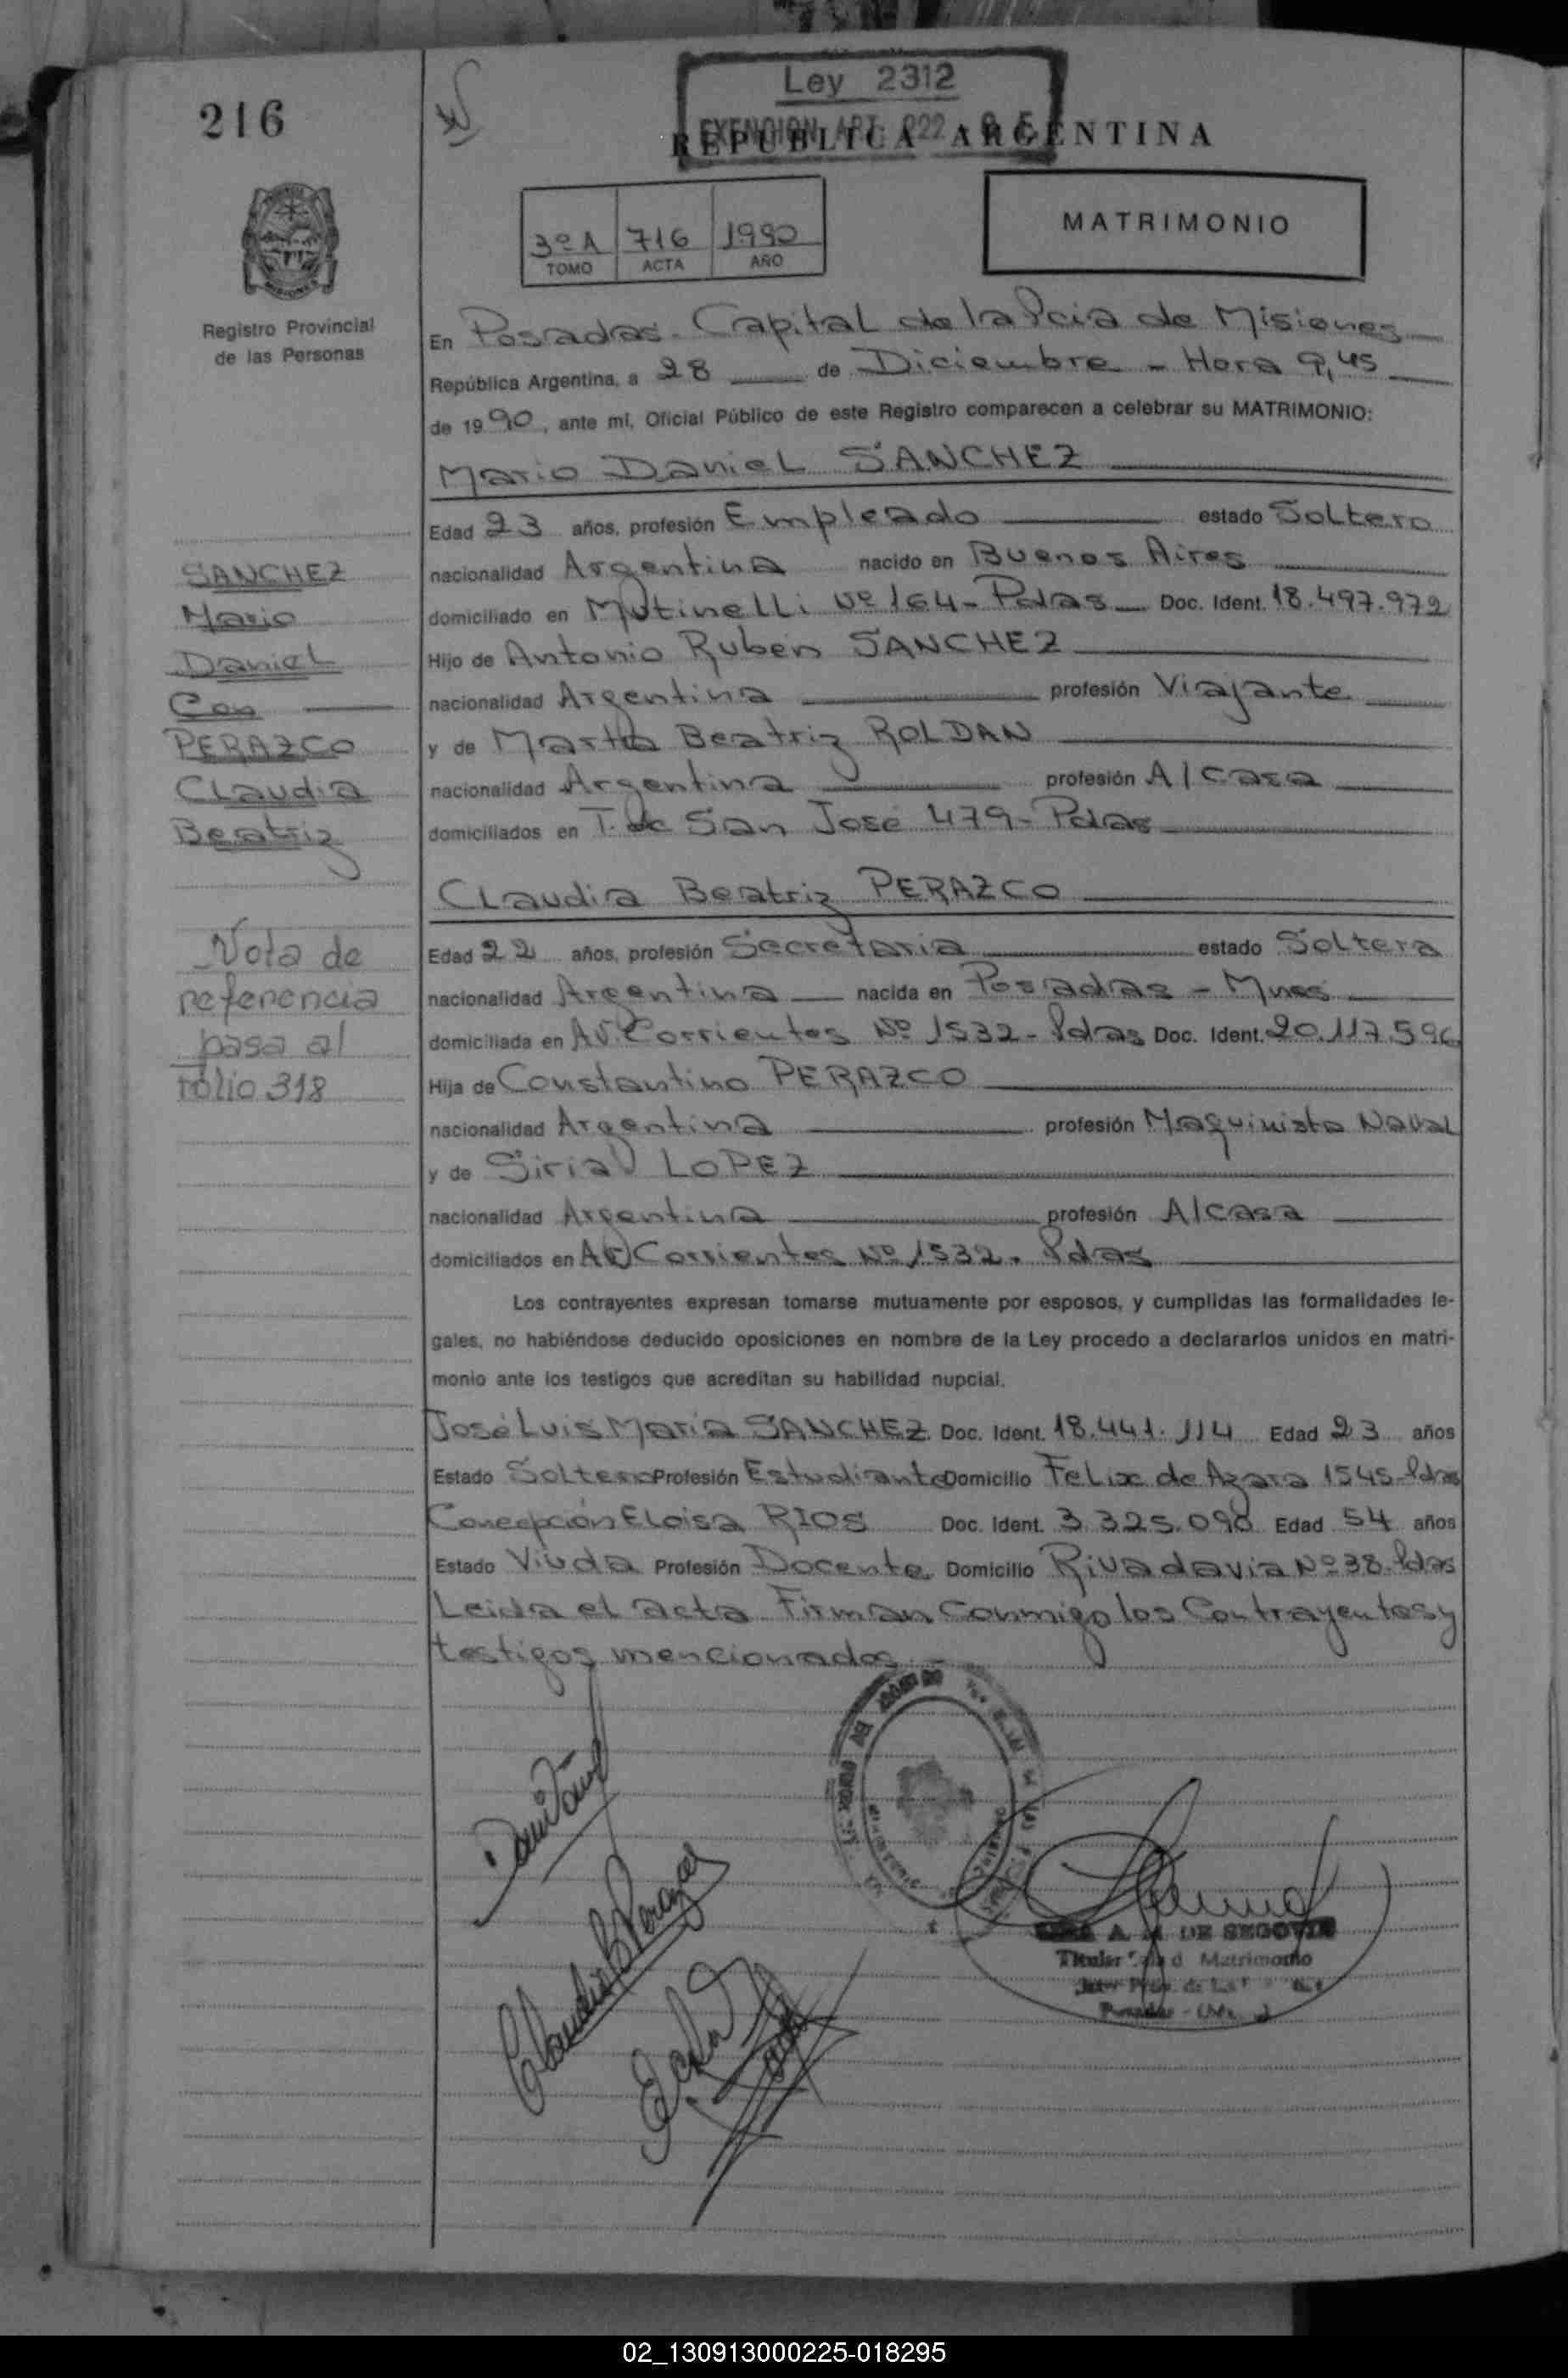 216
Ley 2312
EXENCION ART. 222
REPUBLICA ARGENTINA
3º A 716 1990
TOMO ACTA AÑO
MATRIMONIO
MISIONES
Registro Provincial
de las Personas
En Posadas - Capital de la Pcia de Misiones
República Argentina, a 28 de Diciembre - Hora 9,45
de 1990, ante mí, Oficial Público de este Registro comparecen a celebrar su MATRIMONIO:
Mario Daniel SANCHEZ
Edad 23 años, profesión Empleado estado Soltero
nacionalidad Argentina nacido en Buenos Aires
domiciliado en Mutinelli Nº 164 - Pdas Doc. Ident. 18.497.972
Hijo de Antonio Ruben SANCHEZ
nacionalidad Argentina profesión Viajante
y de Martha Beatriz ROLDAN
nacionalidad Argentina profesión A/casa
domiciliados en T. de San José 479 - Pdas
Claudia Beatriz PERAZCO
Edad 22 años, profesión Secretaria estado Soltera
nacionalidad Argentina nacida en Posadas - Mnes
domiciliada en AV. Corrientes Nº 1532 - Pdas Doc. Ident. 20.117.596
Hija de Constantino PERAZCO
nacionalidad Argentina profesión Maquinista Naval
y de Siria LOPEZ
nacionalidad Argentina profesión A/casa
domiciliados en AV Corrientes Nº 1532. Pdas
Los contrayentes expresan tomarse mutuamente por esposos, y cumplidas las formalidades le-
gales, no habiéndose deducido oposiciones en nombre de la Ley procedo a declararlos unidos en matri-
monio ante los testigos que acreditan su habilidad nupcial.
José Luis Maria SANCHEZ Doc. Ident. 18.441.114 Edad 23 años
Estado Soltero Profesión Estudiante Domicilio Felix de Azara 1545 - Pdas
Concepción Eloisa RIOS Doc. Ident. 3.325.090 Edad 54 años
Estado Viuda Profesión Docente Domicilio Rivadavia Nº 38. Pdas
Leida el acta Firman Conmigo los Contrayentes y
testigos mencionados. -
SANCHEZ
Mario
Daniel
Con
PERAZCO
Claudia
Beatriz
Nota de
referencia
pasa al
folio 318
Claudia B Perazco
A. M DE SEGOVIA
Titular Matrimonio
Posadas
02_130913000225-018295